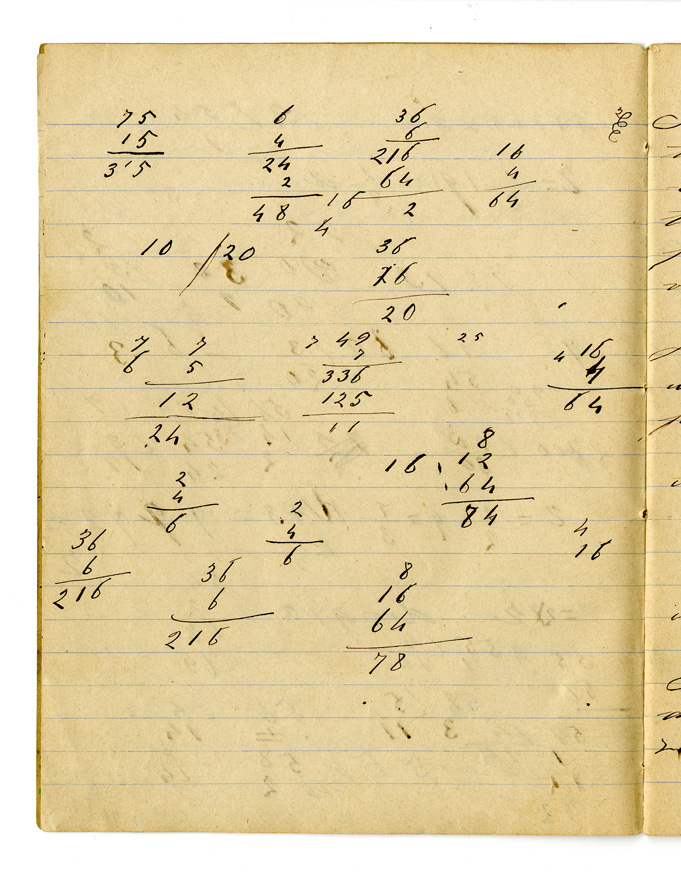 75 6 36
15 4 6
315 24 216 16
2 64 4
48 16 2 64
4
10 / 20 36
76
20
7 7 7 49 25
6 5 7 4 16
336 4
12 125 64
24 11
8
16 12
64
2 84
4
6 2
4 4
36 6 16
6 36 8
216 6 16
216 64
78